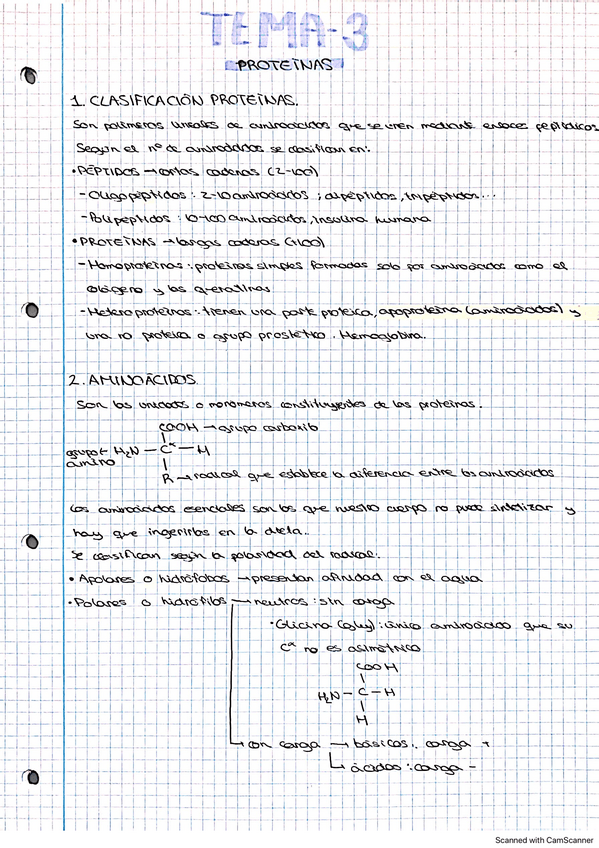 TEMA-3
PROTEÍNAS
1. CLASIFICACIÓN PROTEÍNAS.
Son polímeros lineales de aminoácidos que se unen mediante enlaces peptídicos
Según el nº de aminoácidos se clasifican en:
• PÉPTIDOS → cortas cadenas (2-100)
- Oligopéptidos: 2-10 aminoácidos; dipéptidos, tripéptidos...
- Polipéptidos: 10-100 aminoácidos, insulina humana
• PROTEÍNAS → largas cadenas (>100)
- Homoproteínas: proteínas simples formadas solo por aminoácidos como el
colágeno y las queratinas
- Heteroproteínas: tienen una parte proteica, apoproteína (aminoácidos) y
una no proteica o grupo prostético. Hemoglobina.
2. AMINOÁCIDOS.
Son las unidades o monómeros constituyentes de las proteínas.
COOH → grupo carboxilo
grupo ← H₂N — Cα — H
amino
R → radical que establece la diferencia entre los aminoácidos
Los aminoácidos esenciales son los que nuestro cuerpo no puede sintetizar y
hay que ingerirlos en la dieta.
Se clasifican según la polaridad del radical.
• Apolares o hidrófobos → presentan afinidad con el agua
• Polares o hidrófilos → neutros: sin carga
• Glicina (gly): único aminoácido que su
Cα no es asimétrico
COOH
H₂N — C — H
H
con carga → básicos: carga +
ácidos: carga -
Scanned with CamScanner